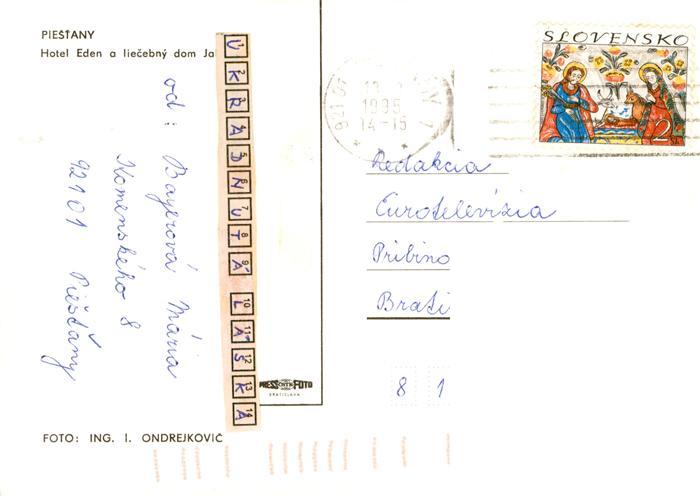 PIEŠŤANY
Hotel Eden a liečebný dom Ja
od: Bayerová Mária
Komenského 8
92101 Piešťany
1 2 3 4 5 6 7 8 9 10 11 12 13 14
UKRADNUTÁ LÁSKA
SLOVENSKO
2
921 01
1995
14-15
Redakcia
Eurotelevízia
Pribino
Brati
8 1
PRESSFOTO
BRATISLAVA
FOTO: ING. I. ONDREJKOVIČ